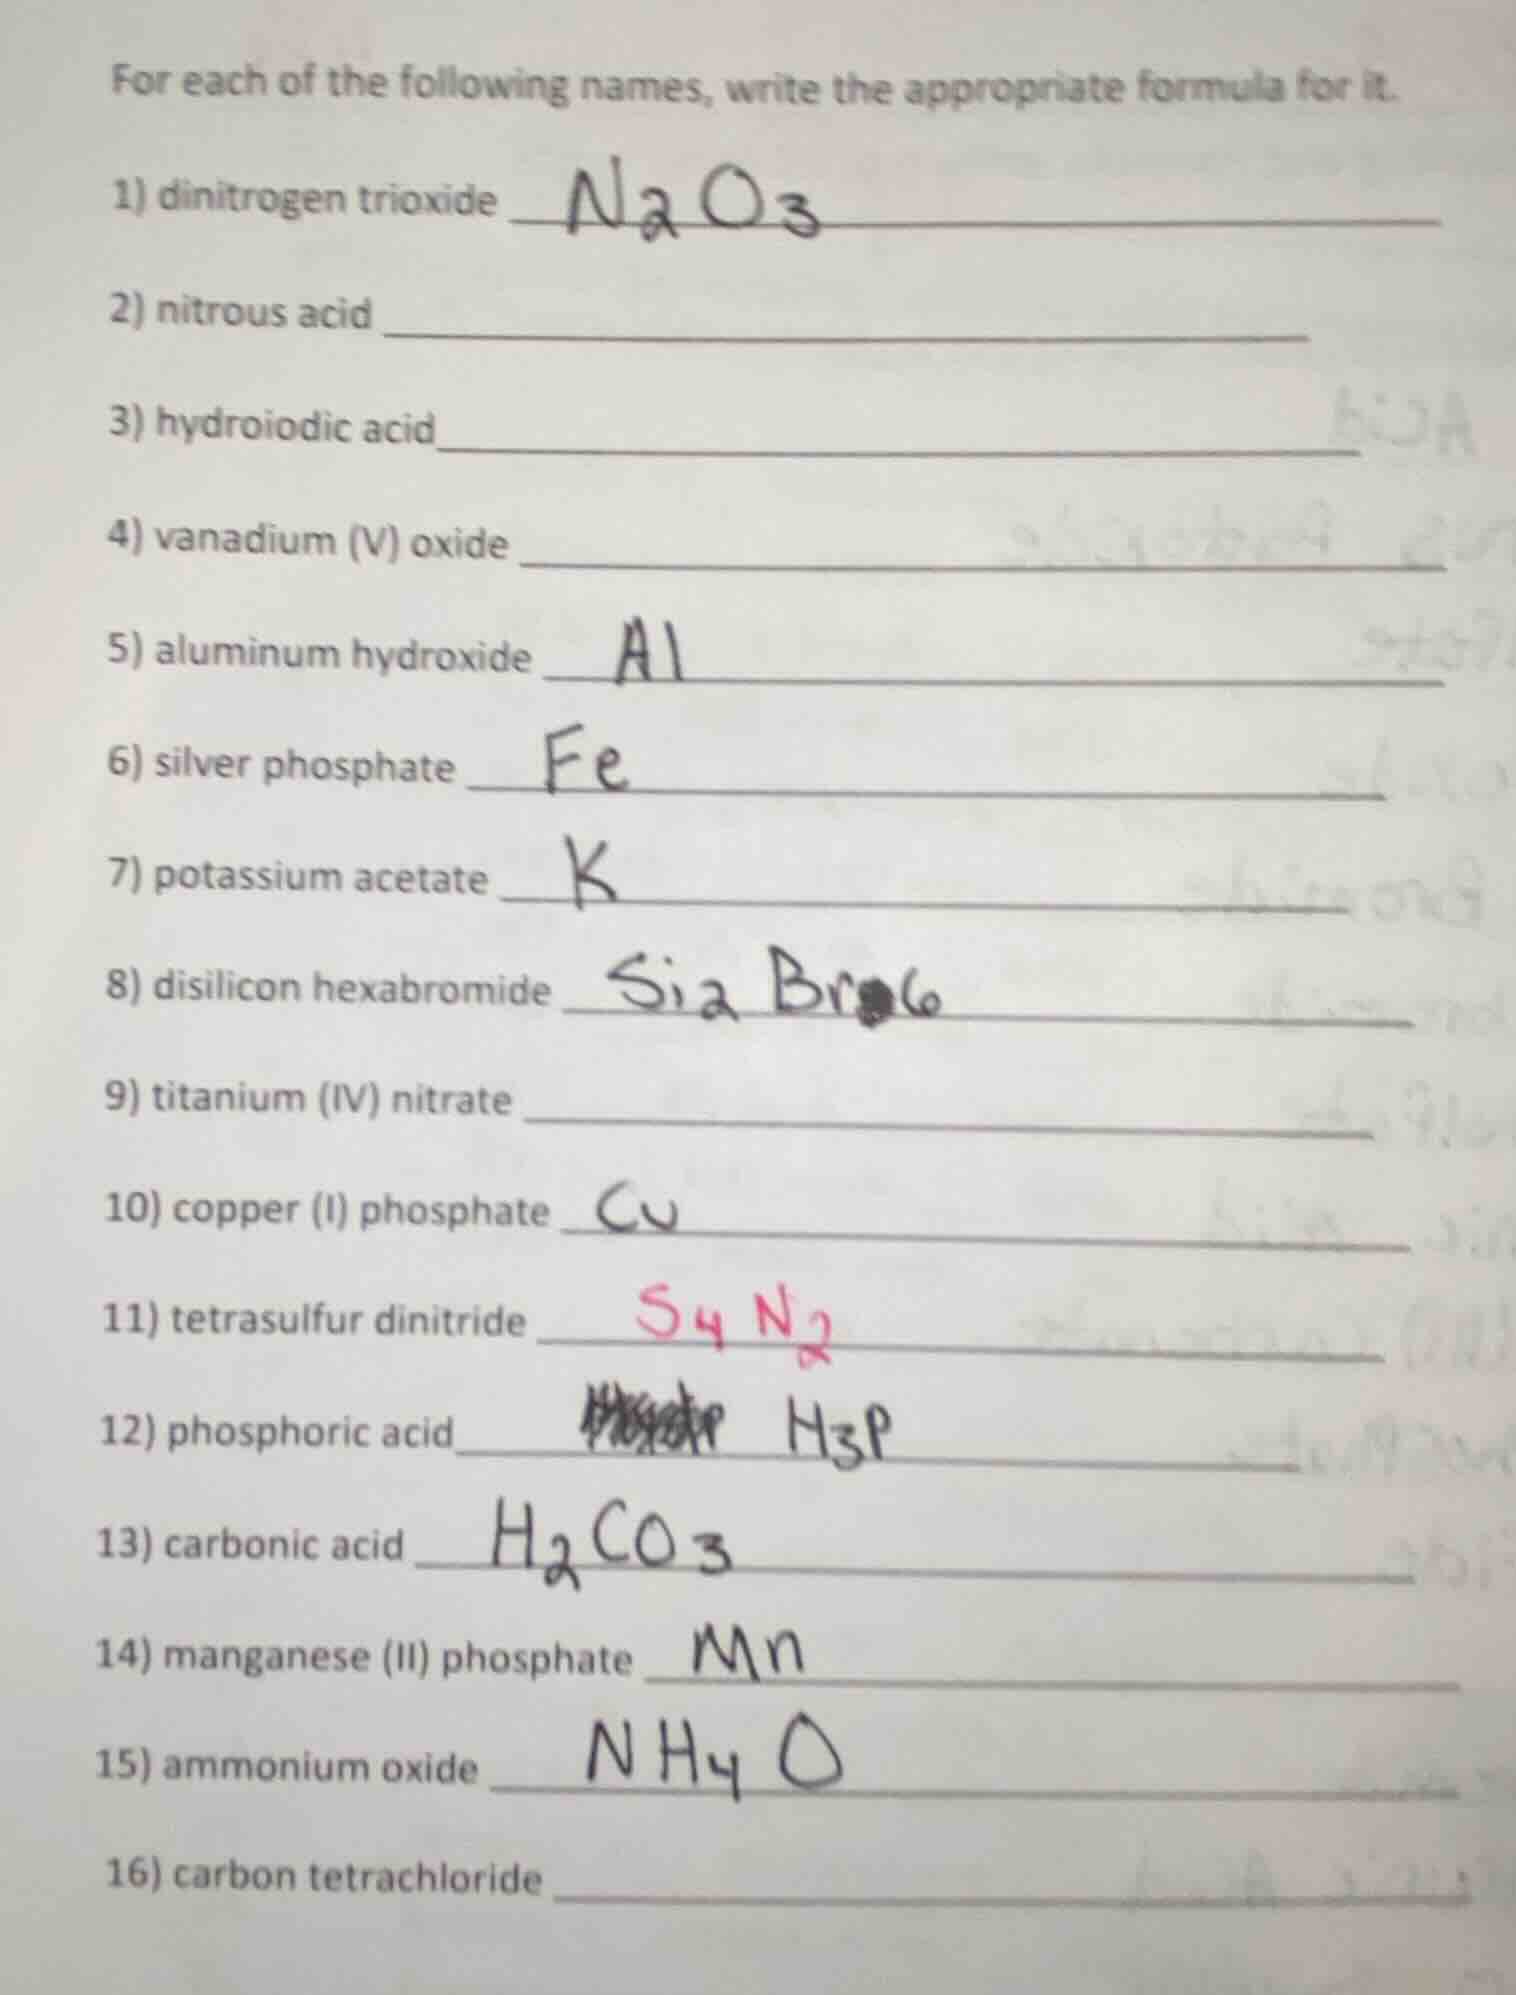 For each of the following names, write the appropriate formula for it.
1) dinitrogen trioxide N2O3
2) nitrous acid
3) hydroiodic acid
4) vanadium (V) oxide
5) aluminum hydroxide Al
6) silver phosphate Fe
7) potassium acetate K
8) disilicon hexabromide Si2 Br6
9) titanium (IV) nitrate
10) copper (I) phosphate Cu
11) tetrasulfur dinitride S4 N2
12) phosphoric acid H3P
13) carbonic acid H2CO3
14) manganese (II) phosphate Mn
15) ammonium oxide NH4 O
16) carbon tetrachloride